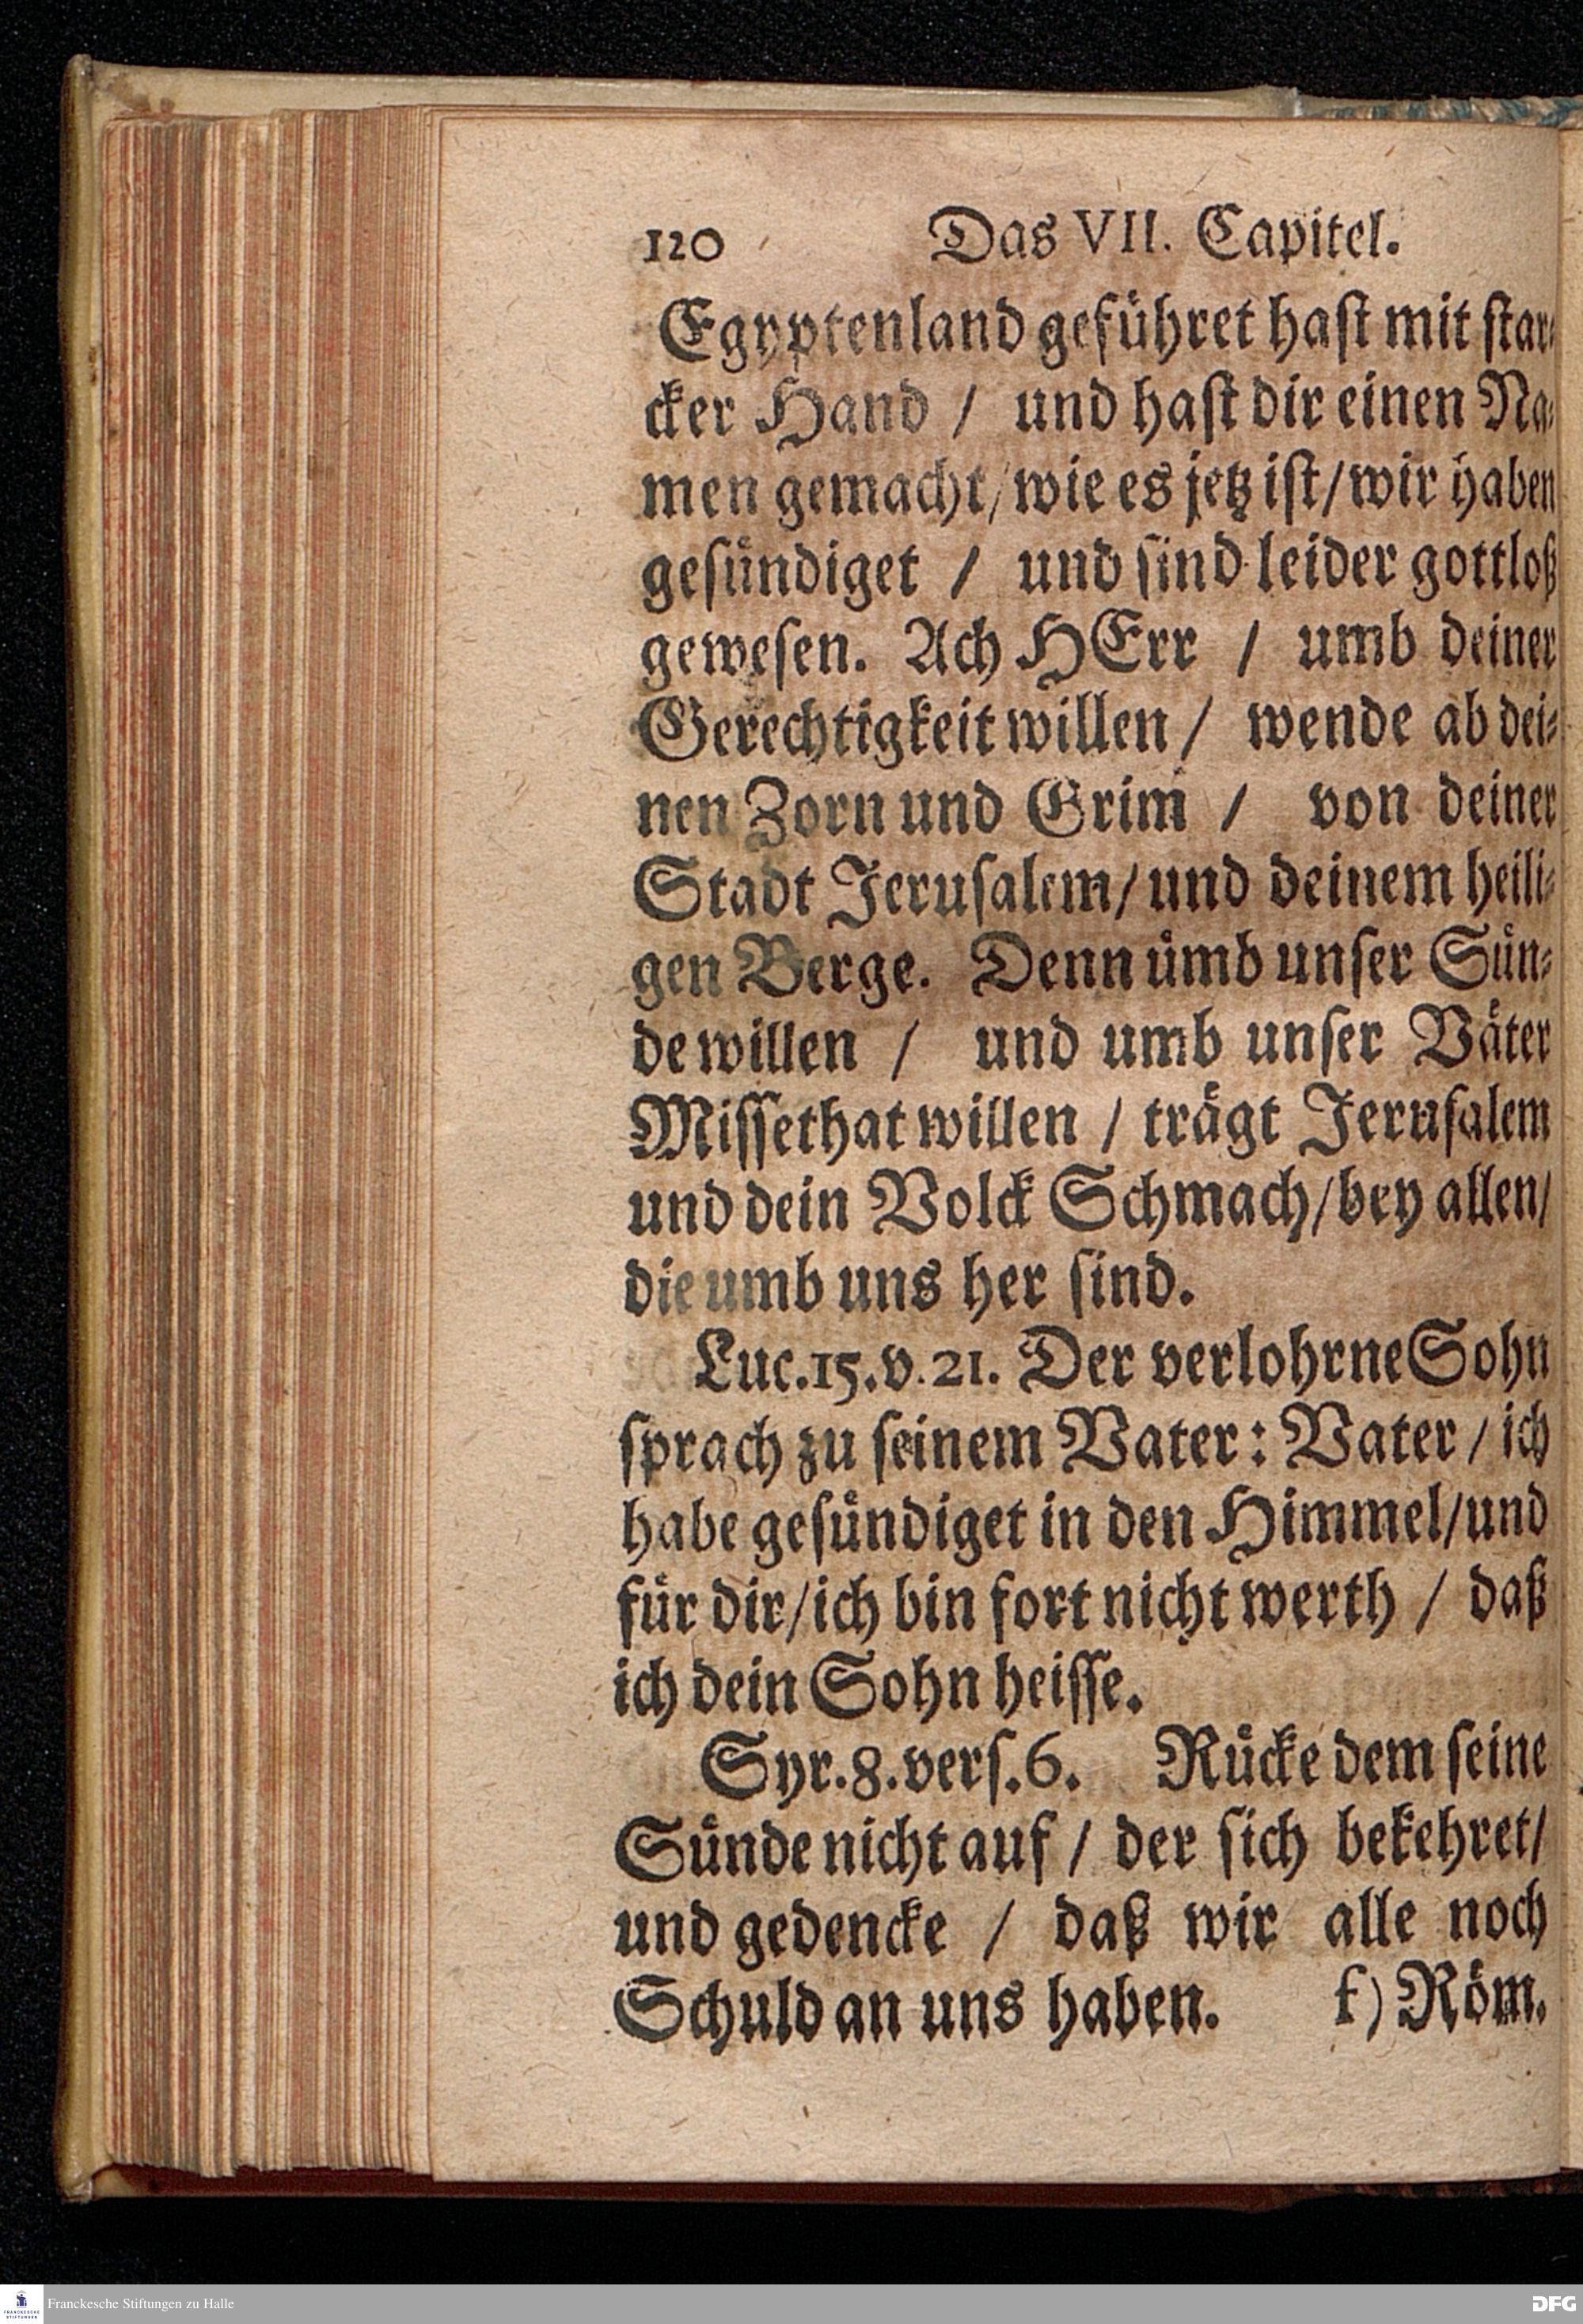 120 Das VII. Capitel.
Egyptenland geführet hast mit star-
cker Hand / und hast dir einen Na-
men gemacht/ wie es jetz ist/ wir haben
gesündiget / und sind leider gottloß
gewesen. Ach HErr / umb deiner
Gerechtigkeit willen / wende ab dei-
nen Zorn und Grim / von deiner
Stadt Jerusalem/ und deinem heili-
gen Berge. Denn ümb unser Sün-
de willen / und umb unser Väter
Missethat willen / trägt Jerusalem
und dein Volck Schmach/ bey allen/
die umb uns her sind.
Luc. 15. v. 21. Der verlohrne Sohn
sprach zu seinem Vater: Vater / ich
habe gesündiget in den Himmel/ und
für dir/ ich bin fort nicht werth / daß
ich dein Sohn heisse.
Syr. 8. vers. 6. Rücke dem seine
Sünde nicht auf / der sich bekehret/
und gedencke / daß wir alle noch
Schuld an uns haben. f) Röm.
FRANCKESCHE STIFTUNGEN
Franckesche Stiftungen zu Halle
DFG